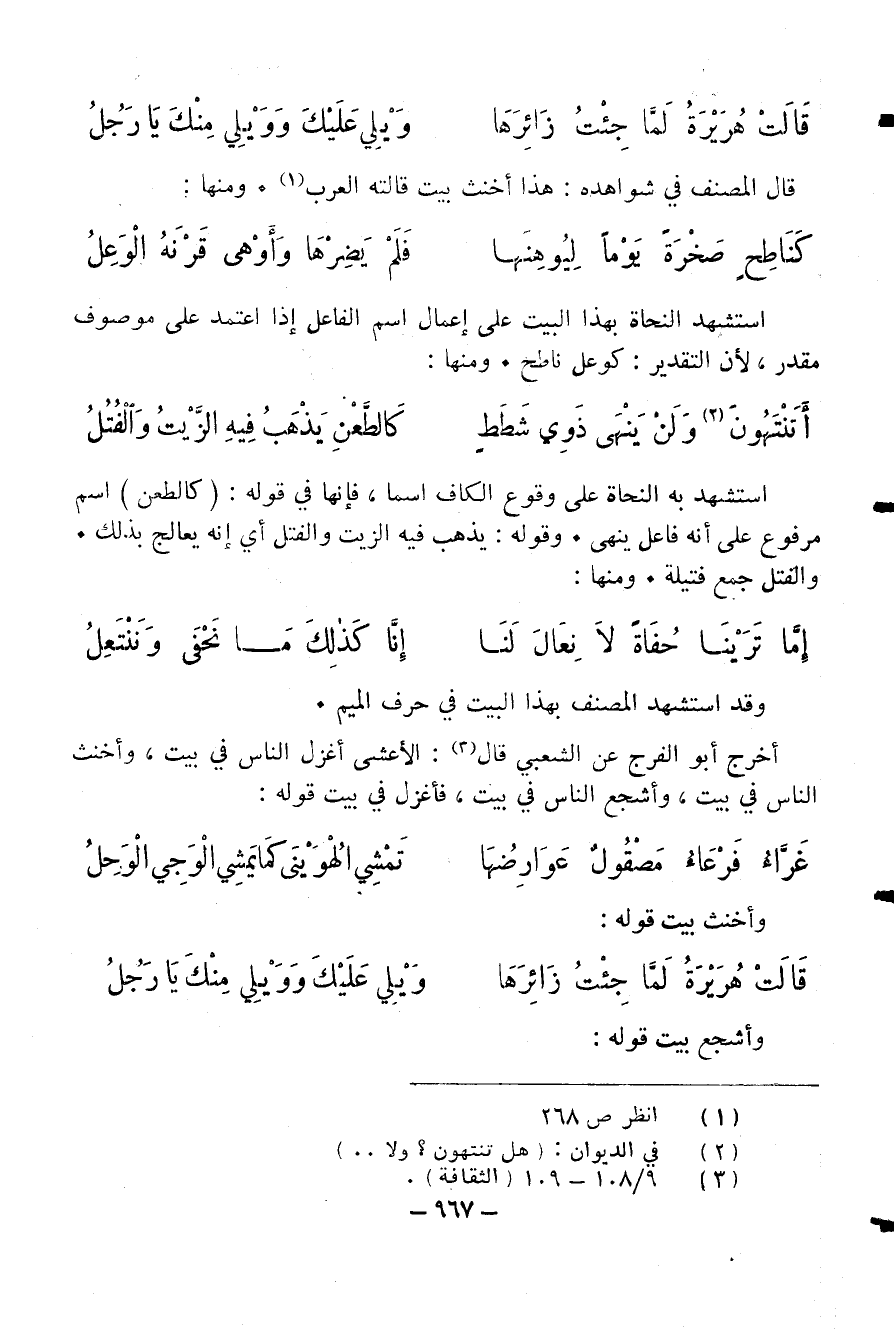 قَالَتْ هُرَيْرَةُ لَمَّا جِئْتُ زَائِرَهَا وَيْلِي عَلَيْكَ وَوَيْلِي مِنْكَ يَا رَجُلُ
قال المصنف في شواهده : هذا أخنث بيت قالته العرب(١) • ومنها :
كَنَاطِحٍ صَخْرَةً يَوْماً لِيُوهِنَهَا فَلَمْ يَضِرْهَا وَأَوْهى قَرْنَهُ الْوَعِلُ
استشهد النحاة بهذا البيت على إعمال اسم الفاعل إذا اعتمد على موصوف
مقدر ، لأن التقدير : كوعل ناطح • ومنها :
أَتَنْتَهُونَ(٢) وَلَنْ يَنْهَى ذَوِي شَطَطٍ كَالطَّعْنِ يَذْهَبُ فِيهِ الزَّيْتُ وَالْفُتُلُ
استشهد به النحاة على وقوع الكاف اسما ، فإنها في قوله : ( كالطعن ) اسم
مرفوع على أنه فاعل ينهى • وقوله : يذهب فيه الزيت والفتل أي إنه يعالج بذلك •
والفتل جمع فتيلة • ومنها :
إِمَّا تَرَيْنَـا حُفَاةً لاَ نِعَالَ لَنَـا إِنَّا كَذٰلِكَ مَـــا نَحْفَى وَنَنْتَعِلُ
وقد استشهد المصنف بهذا البيت في حرف الميم •
أخرج أبو الفرج عن الشعبي قال(٣) : الأعشى أغزل الناس في بيت ، وأخنث
الناس في بيت ، وأشجع الناس في بيت ، فأغزل في بيت قوله :
غَرَّاءُ فَرْعَاءُ مَصْقُولٌ عَوَارِضُهَا تَمْشِي الْهُوَيْنَى كَمَا يَمْشِي الْوَجِي الْوَحِلُ
وأخنث بيت قوله :
قَالَتْ هُرَيْرَةُ لَمَّا جِئْتُ زَائِرَهَا وَيْلِي عَلَيْكَ وَوَيْلِي مِنْكَ يَا رَجُلُ
وأشجع بيت قوله :
(١) انظر ص ٢٦٨
(٢) في الديوان : ( هل تنتهون ؟ ولا .. )
(٣) ١٠٨/٩ – ١٠٩ ( الثقافة ) .
– ٩٦٧ –